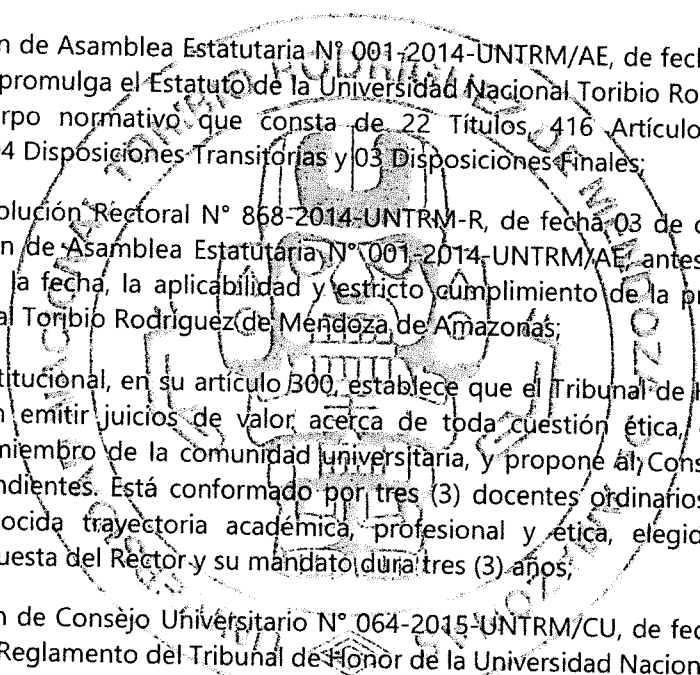 n de Asamblea Estatutaria N° 001-2014-UNTRM/AE, de fech
promulga el Estatuto de la Universidad Nacional Toribio Ro
rpo normativo que consta de 22 Títulos, 416 Artículo
4 Disposiciones Transitorias y 03 Disposiciones Finales;
olución Rectoral N° 868-2014-UNTRM-R, de fecha 03 de o
n de Asamblea Estatutaria N° 001-2014-UNTRM/AE, antes
la fecha, la aplicabilidad y estricto cumplimiento de la pr
al Toribio Rodríguez de Mendoza de Amazonas;
titucional, en su artículo 300, establece que el Tribunal de H
n emitir juicios de valor acerca de toda cuestión ética,
miembro de la comunidad universitaria, y propone al Cons
ndientes. Está conformado por tres (3) docentes ordinarios
ocida trayectoria académica, profesional y ética, elegid
uesta del Rector y su mandato dura tres (3) años;
n de Consejo Universitario N° 064-2015-UNTRM/CU, de fec
Reglamento del Tribunal de Honor de la Universidad Nacion